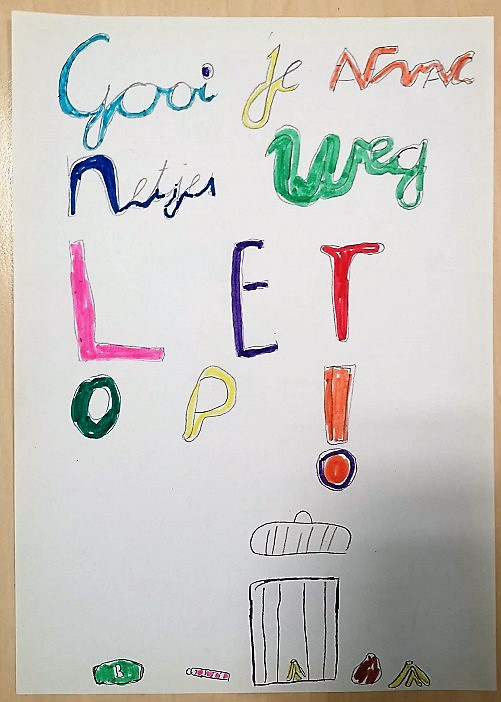 Gooi je
netjes weg
LET
OP!
B